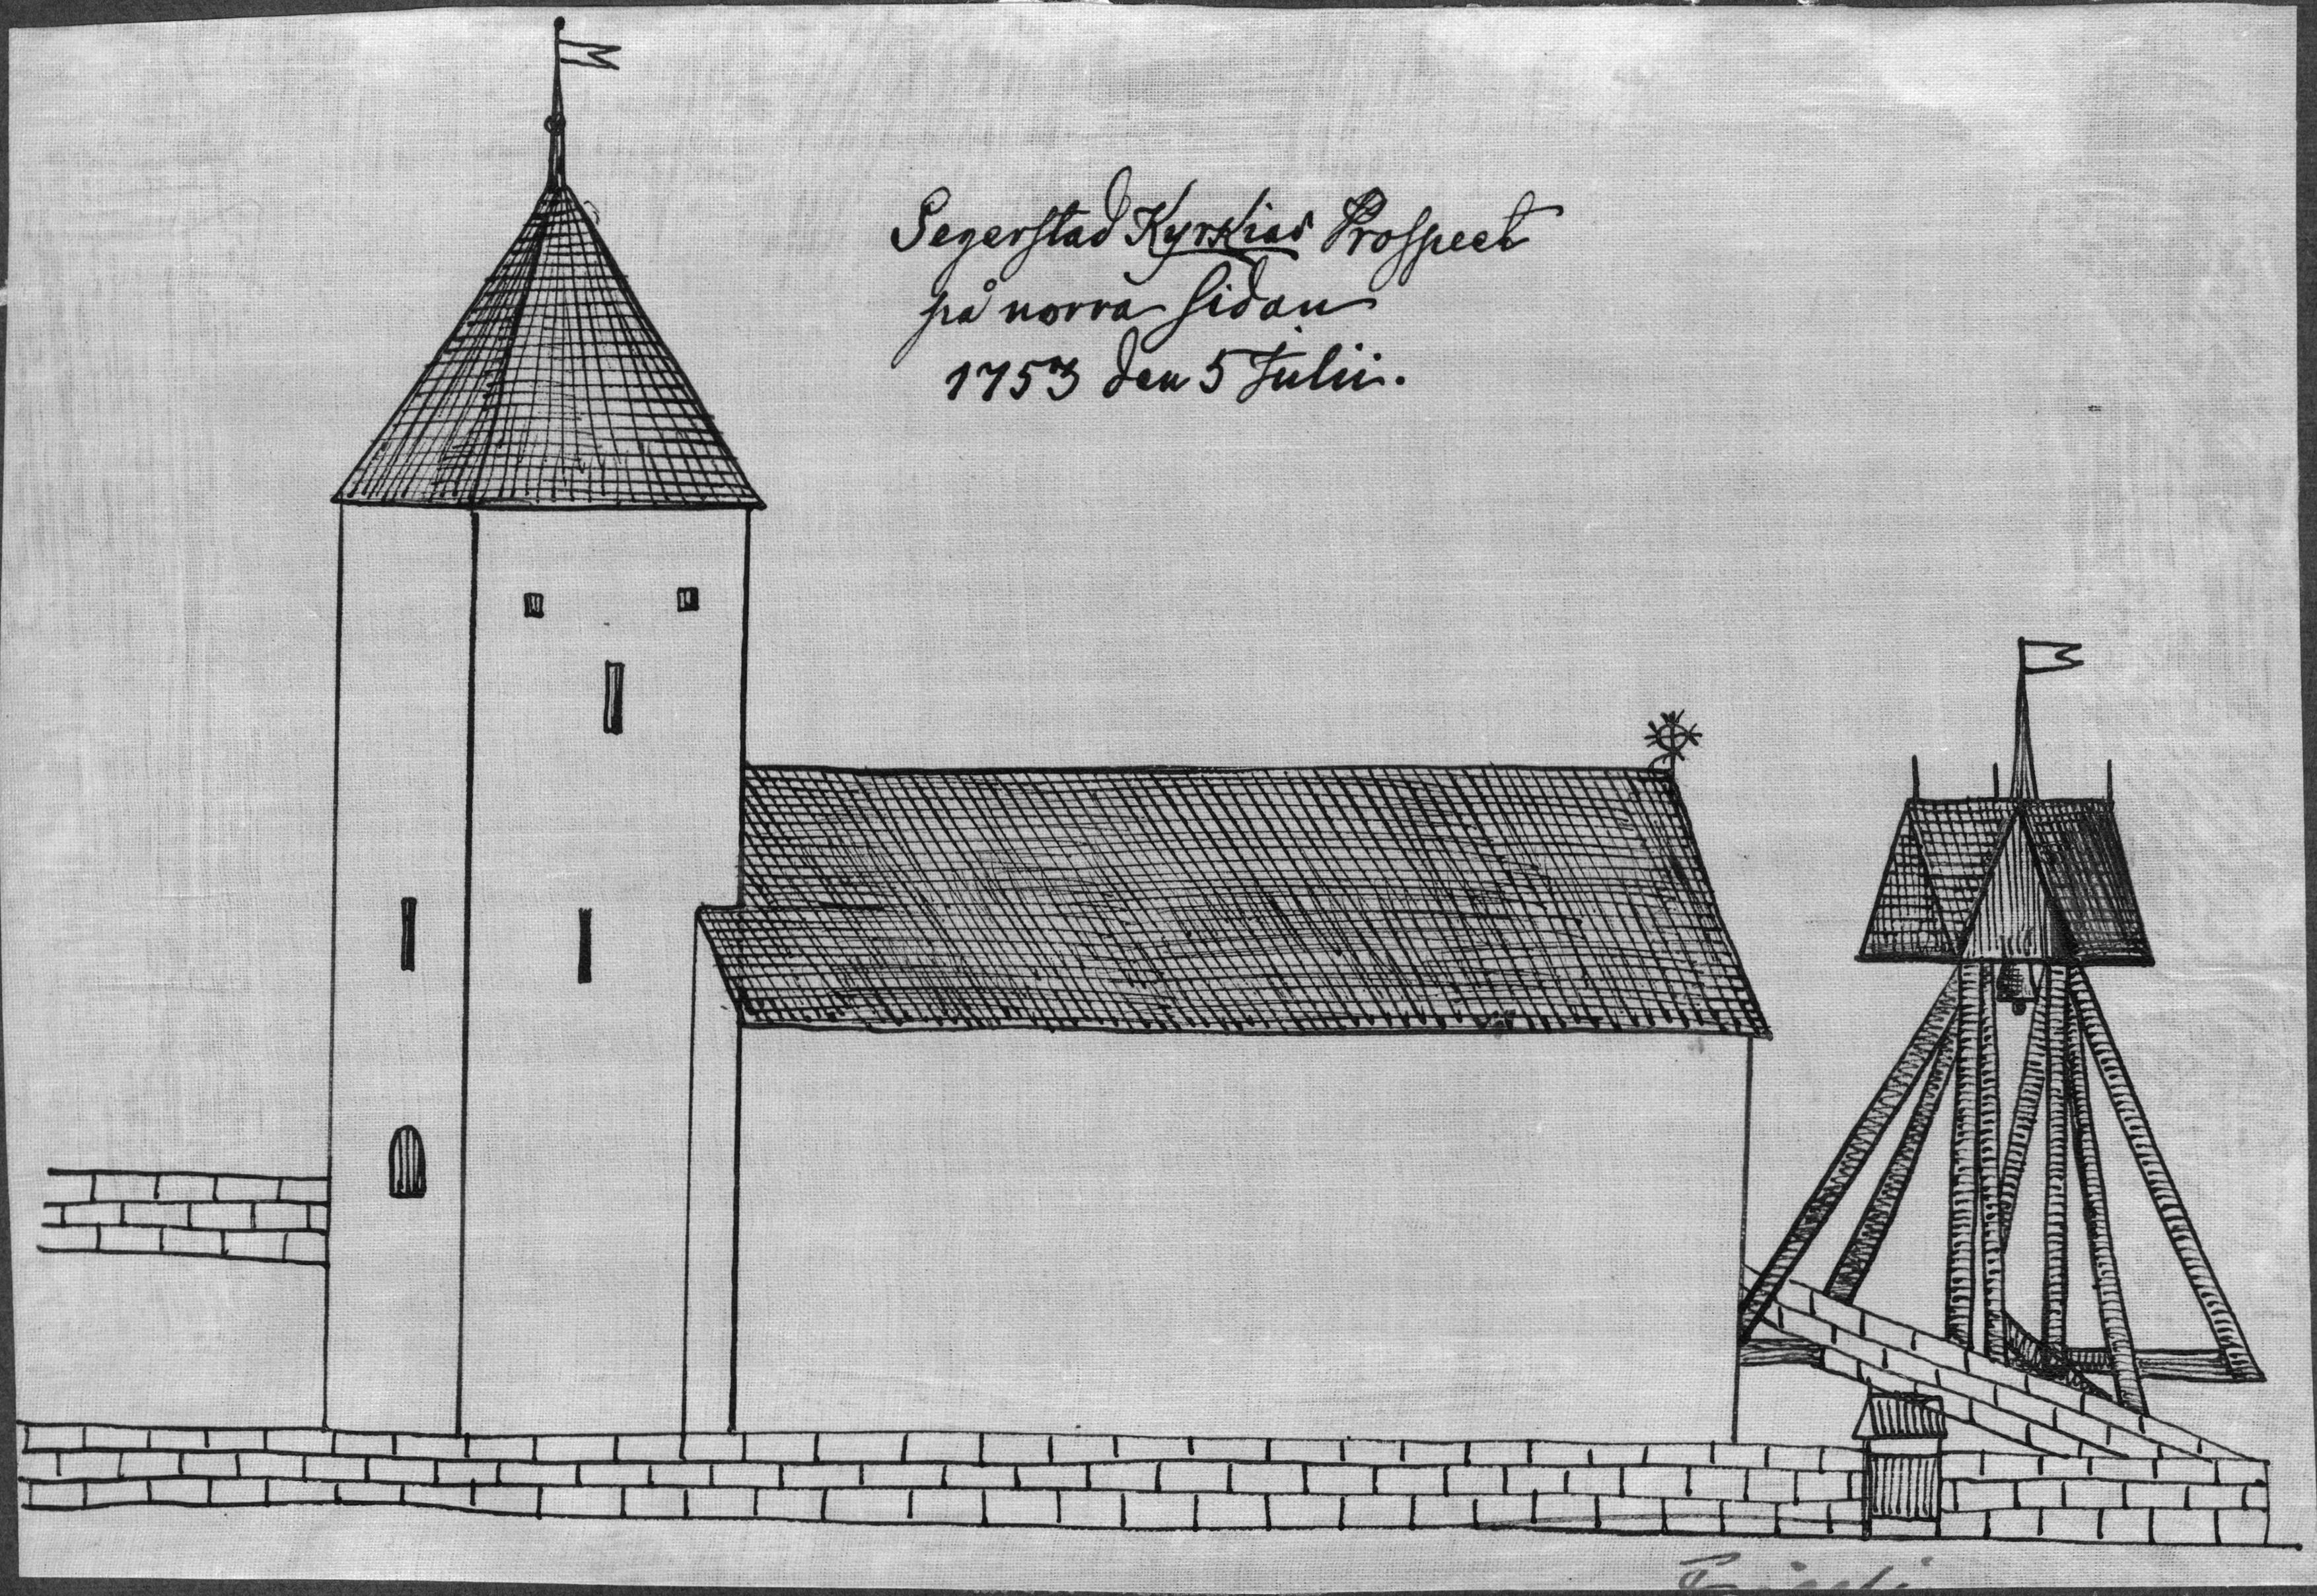 Segerstad Kyrkias Prospect
på norra sidan
1753 den 5 Julii.